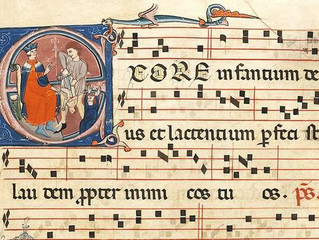 EX ORE infantium de
us et lactentium perfecisti
lau dem propter inimi cos tu os. ps.